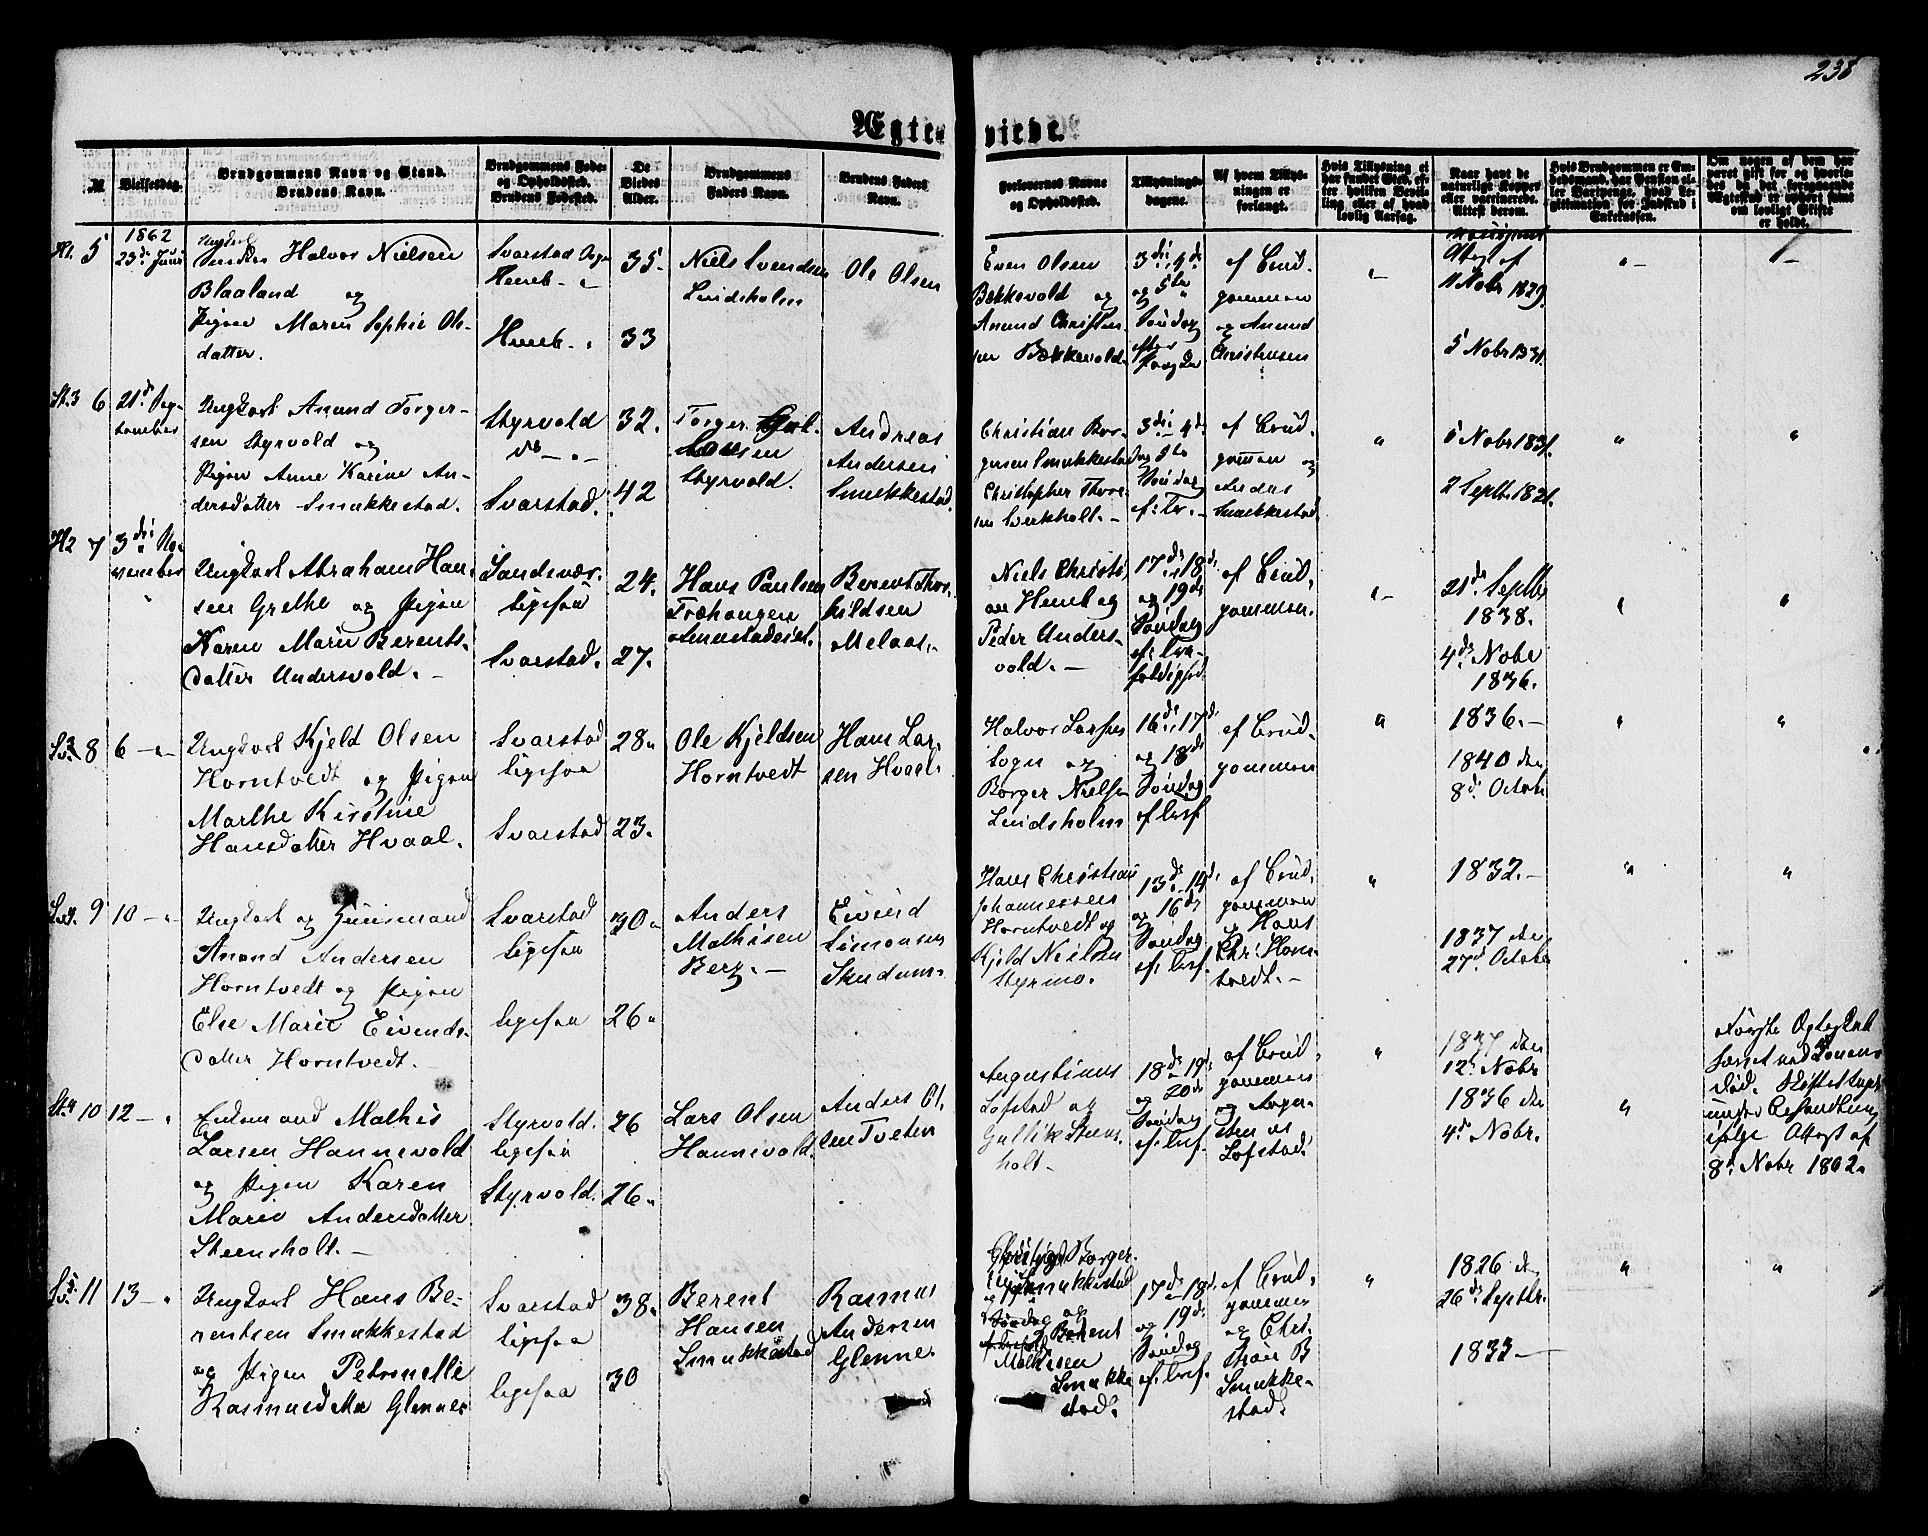 238
Ægteviede.
№
Vielsesdag.
Brudgommens Navn og Stand.
Brudens Navn.
Brudgommens Føde-
og Opholdssted.
Brudens Fødested.
De
Viedes
Alder.
Brudgommens
Faders Navn.
Brudens Faders
Navn.
Forlovernes Navne
og Opholdssted.
Tillysnings-
dagene.
Af hvem Tillys-
ningen er
forlangt.
Hvis Tillysning ei
har fundet Sted, ef-
ter hvilken Bevil-
ling eller af hvad
lovlig Aarsag.
Naar havt de
naturlige Kopper
eller vaccinerede.
Attest derom.
Hvis Brudgommen er Em-
bedsmand, har Pension el-
ler Vartpenge, hvad Le-
gitimation for Indskud i
Enkekassen.
Om nogen af dem har
været gift før og hvorle-
des da det foregaaende
Ægteskab er ophørt samt
om lovligt Skifte
er holdt.
5
1862
23de Juni
Halvor Nielsen
Blaaland og
Pigen Maren Sophie Ols-
datter.
Svarstad Sogn
35.
33
Niels Svendsen
Lindsholm
Ole Olsen
Even Olsen
Bækkevold og
Anund Christen-
sen Bækkevold.
3die, 4de
og 5te
Søndag
af Brud-
gommen
og Anund
Christensen
Attest af
11 Nobr 1829.
5 Nobr 1831.
6
21de Sep-
tember
Ungkarl Anund Torger-
sen Styrvold og
Pigen Anne Karine An-
dersdatter Smukkestad.
Styrvold
do
Svarstad.
32.
42
Torger
Styrvold.
Andreas
Andersen
Smukkestad.
Christian Bor-
gersen Smukkestad
Christopher Thore-
sen
3die 4de
og 5te
Søndag
ef. Tr.
af Brud-
gommen og
Andas
Smukkestad.
5 Nobr 1831.
2 Septb. 1821.
7
3die No-
vember
Ungkarl Abraham Han-
sen Grethe og Pigen
Karen Marie Berents-
datter Undersvold.
Sandsvær.
ligesaa
Svarstad.
24.
27.
Hans Paulsen
Træhaugen
Berent Thor-
kildsen
Melaas.
Niels Christi-
an Hemb og
Peder Unders-
vold.
17de, 18de
og 19de
Søndag
ef. Tre-
foldighed
af Brud-
gommen.
21de Septbr
1838.
4de Nobr
1836.
8
6
Ungkarl Kjeld Olsen
Horntvedt og Pigen
Marthe Kirstine
Hansdatter Hvaal.
Svarstad
ligesaa
Svarstad
28
23.
Ole Kjeldsen
Horntvedt
Hans Lar-
sen Hvaal
Halvor
Sogn og
Borger Nielsen
Lindsholm
16de, 17de
og 18de
Søndag
ef. Tref
af Brud-
gommen
1836.
1840 den
8de Octobr
9
10
Ungkarl og Huusmand
Anund Andersen
Horntvedt og Pigen
Else Marie Eivends-
datter Horntvedt.
Svarstad
ligesaa
ligesaa
30
26
Anders
Mathisen
Berg.
Eivind
Simonsen
Skindum
Hans Christian
Johannessen
Horntvedt og
Kjeld Nielsen
Styrmo.
13de 14de
og 16de
Søndag
ef. Tref.
af Brud-
gommen
og Hans
Chr: Horn-
tvedt.
1832.
1837 den
27de October
10
12
Enkemand Mathis
Larsen Hannevold
og Pigen Karen
Marie Andersdatter
Steensholt.
Styrvold.
ligesaa
Styrvold.
26
26
Lars Olsen
Hannevold.
Anders Ol-
sen Tveten
Augustinus
Løfstad og
Gullik Steens-
holt.
18de 19de
og 20de
Søndag
ef. Tref.
af Brud-
gommen
og Augu-
stinus
Løfstad.
1837 den
12te Nobr
1836 den
4de Nobr.
Første Ægteskab
hævet ved Konens
Død. Skiftet tages
under Behandling
ifølge Attest af
8de Nobr 1862.
11
13
Ungkarl Hans Be-
rentsen Smukkestad
og Pigen Petronelle
Rasmusd Mu Glenne
Svarstad
ligesaa
ligesaa
38
30
Berent
Hansen
Smukkestad
Rasmus
Andersen
Glenne.
Borger-
Smukkestad
og
Berent
Mathisen
Smukke
stad.
17de 18de
og 19de
Søndag
ef. Tref.
af Brud-
gommen
og Chri-
stian B
Smukke-
stad.
1826 den
26de Septbr.
1833